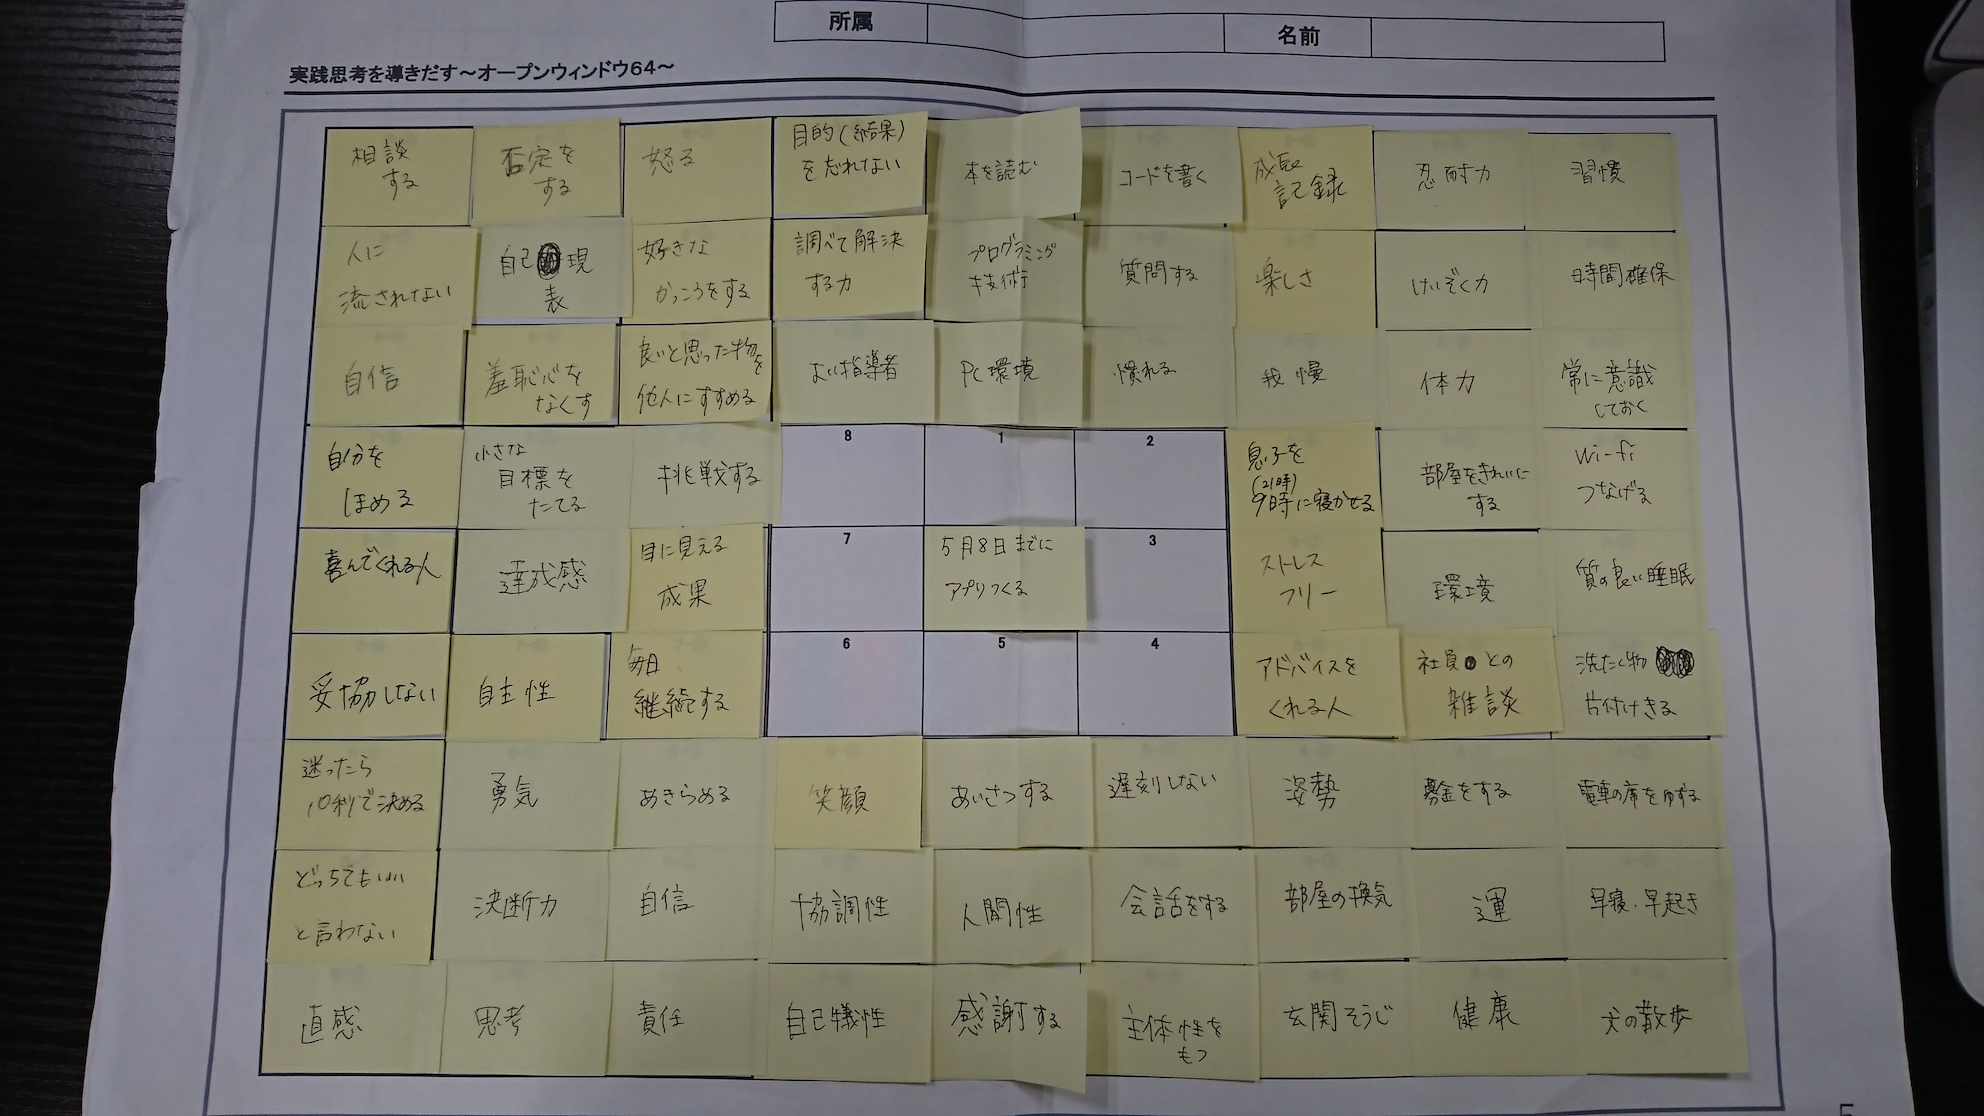 所属
名前
実践思考を導きだす～オープンウィンドウ64～
相談
する
否定を
する
怒る
目的(結果)
を忘れない
本を読む
コードを書く
記録
忍耐力
習慣
人に
流されない
自己現
表
好きな
かっこうをする
調べて解決
する力
プログラミング
技術
質問する
楽しさ
けいぞく力
時間確保
自信
羞恥心を
なくす
良いと思った物を
他人にすすめる
よい指導者
PC環境
慣れる
我慢
体力
常に意識
しておく
自分を
ほめる
小さな
目標を
たてる
挑戦する
8
1
2
息子を
(21時)
9時に寝かせる
部屋をきれいに
する
Wi-fi
つなげる
喜んでくれる人
達成感
目に見える
成果
7
5月8日までに
アプリつくる
3
ストレス
フリー
環境
質の良い睡眠
妥協しない
自主性
毎日
継続する
6
5
4
アドバイスを
くれる人
社員との
雑談
洗たく物
片付けきる
迷ったら
10秒で決める
勇気
あきらめる
笑顔
あいさつする
遅刻しない
姿勢
募金をする
電車の席をゆずる
どっちでもいい
と言わない
決断力
自信
協調性
人間性
会話をする
部屋の換気
運
早寝・早起き
直感
思考
責任
自己犠性
感謝する
主体性を
もつ
玄関そうじ
健康
犬の散歩